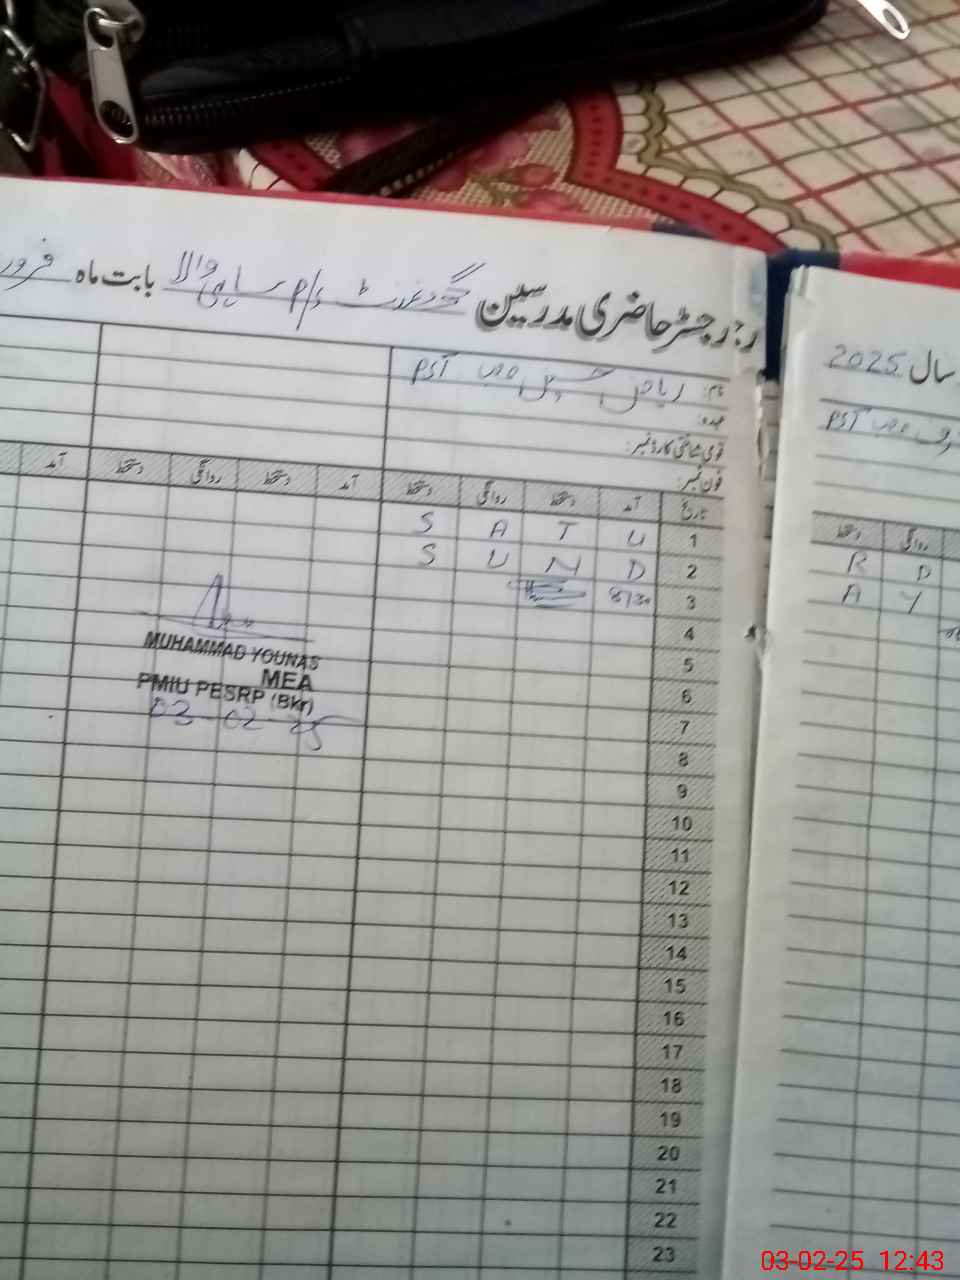 رجسٹر حاضری مدرسین گورنمنٹ P/S ساہی والا بابت ماہ فرور
سال 2025
نام: ریاض حسین PST
عہدہ:
قومی شناختی کارڈ نمبر:
فون نمبر:
PST
تاریخ آمد دستخط روانگی دستخط آمد دستخط روانگی دستخط آمد
روانگی دستخط
1 U T A S
D R
2 D N U S
Y A
3 8/30
4
5
6
7
8
9
10
11
12
13
14
15
16
17
18
19
20
21
22
23
MUHAMMAD YOUNAS
MEA
PMIU PESRP (Bkr)
03-02-25
03-02-25 12:43